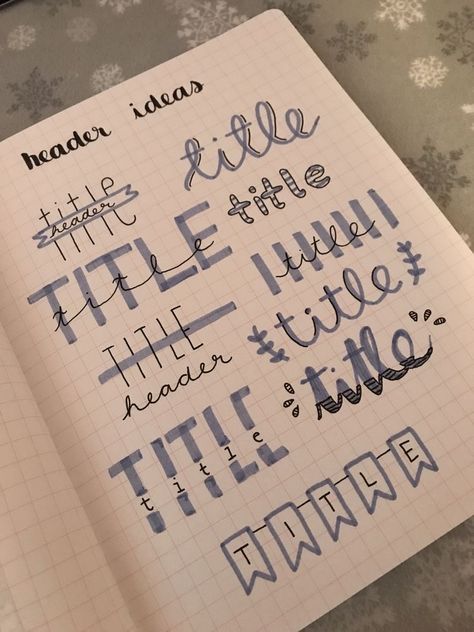 header ideas
title
header
title
title
TITLE
title
title
TITLE
header
title
title
TITLE
title
TITLE